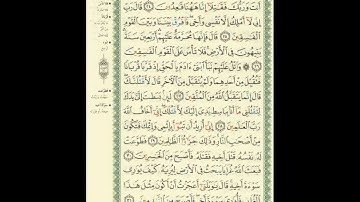 أَنتَ وَرَبُّكَ فَقَٰتِلَآ إِنَّا هَٰهُنَا قَٰعِدُونَ قَالَ رَبِّ
إِنِّي لَآ أَمْلِكُ إِلَّا نَفْسِي وَأَخِي فَٱفْرُقْ بَيْنَنَا وَبَيْنَ ٱلْقَوْمِ
ٱلْفَٰسِقِينَ قَالَ فَإِنَّهَا مُحَرَّمَةٌ عَلَيْهِمْ أَرْبَعِينَ سَنَةً
يَتِيهُونَ فِي ٱلْأَرْضِ فَلَا تَأْسَ عَلَى ٱلْقَوْمِ ٱلْفَٰسِقِينَ
وَٱتْلُ عَلَيْهِمْ نَبَأَ ٱبْنَيْ ءَادَمَ بِٱلْحَقِّ إِذْ قَرَّبَا قُرْبَانًا
فَتُقُبِّلَ مِنْ أَحَدِهِمَا وَلَمْ يُتَقَبَّلْ مِنَ ٱلْأَخَرِ قَالَ لَأَقْتُلَنَّكَ
قَالَ إِنَّمَا يَتَقَبَّلُ ٱللَّهُ مِنَ ٱلْمُتَّقِينَ لَئِنۢ بَسَطتَ إِلَيَّ يَدَكَ
لِتَقْتُلَنِي مَآ أَنَا۠ بِبَاسِطٍ يَدِيَ إِلَيْكَ لِأَقْتُلَكَ إِنِّيَ أَخَافُ ٱللَّهَ
رَبَّ ٱلْعَٰلَمِينَ إِنِّيَ أُرِيدُ أَن تَبُوٓأَ بِإِثْمِي وَإِثْمِكَ فَتَكُونَ
مِنْ أَصْحَٰبِ ٱلنَّارِ وَذَٰلِكَ جَزَٰٓؤُا۟ ٱلظَّٰلِمِينَ فَطَوَّعَتْ
لَهُۥ نَفْسُهُۥ قَتْلَ أَخِيهِ فَقَتَلَهُۥ فَأَصْبَحَ مِنَ ٱلْخَٰسِرِينَ
فَبَعَثَ ٱللَّهُ غُرَابًا يَبْحَثُ فِي ٱلْأَرْضِ لِيُرِيَهُۥ كَيْفَ يُوَٰرِي
سَوْءَةَ أَخِيهِ قَالَ يَٰوَيْلَتَىٰٓ أَعَجَزْتُ أَنْ أَكُونَ مِثْلَ هَٰذَا